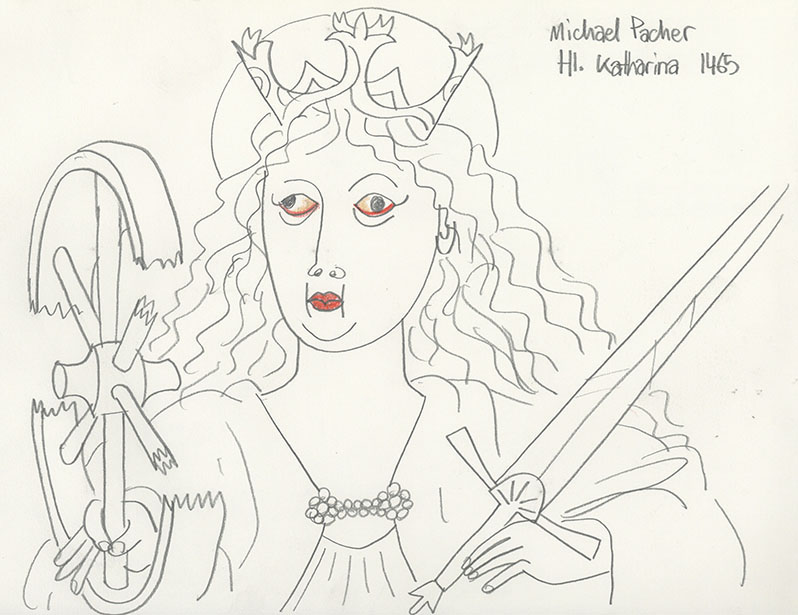 Michael Pacher
Hl. Katharina 1465